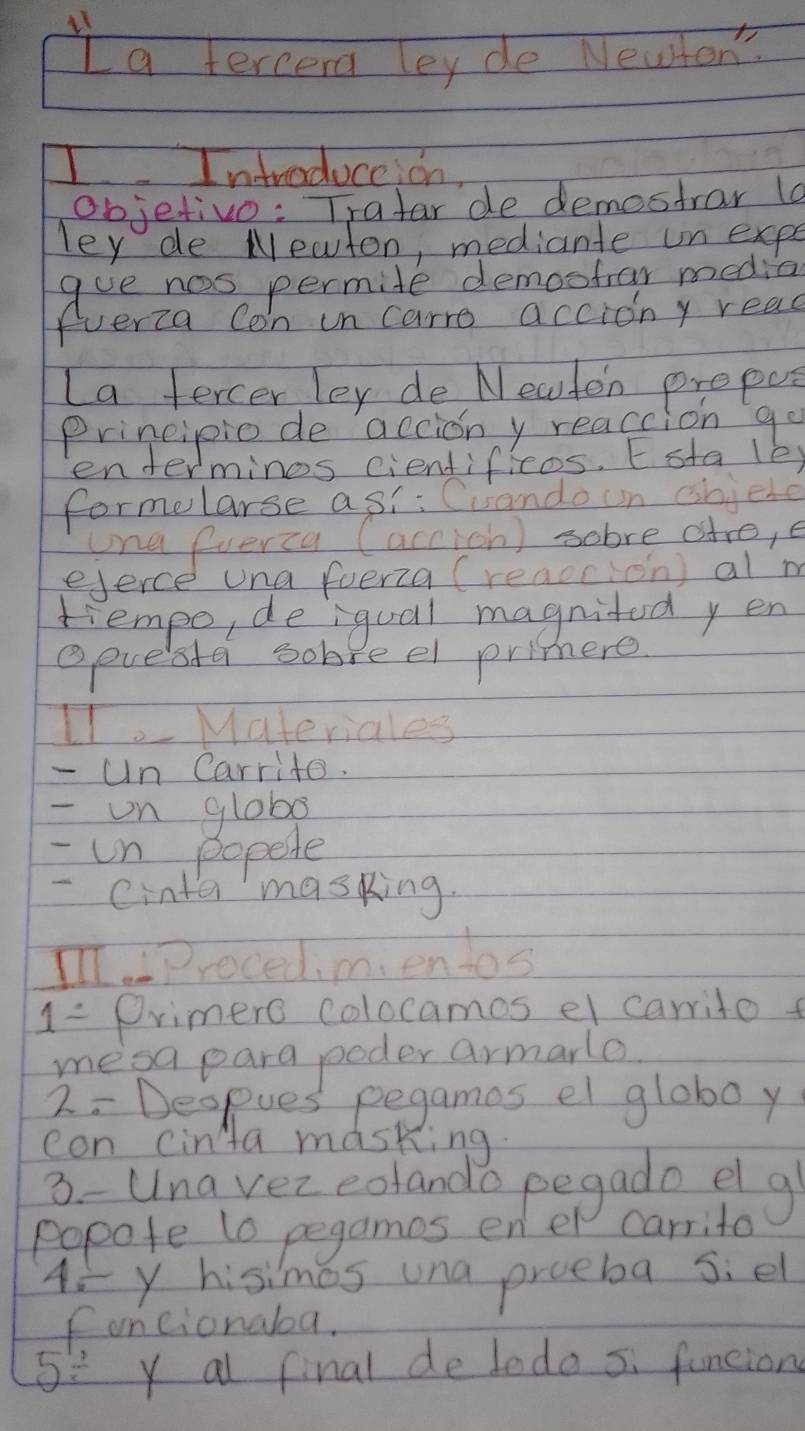 "La tercera ley de Newton".
I.- Introduccion.
Objetivo: Tratar de demostrar la
ley de Newton, mediante un expe
que nos permite demostrar media
fuerza con un carro acción y reac
La tercer ley de Newton propus
Principio de acción y reacción qu
en terminos cientificos. Esta ley
formularse así: Cuando un objeto
una fuerza (acción) sobre otro, e
ejerce una fuerza (reacción) al m
tiempo, de igual magnitud y en
opuesta sobre el primero.
II.- Materiales
- Un Carrito.
- un globo
- un popote
- Cinta masking.
III.- Procedimientos
1- Primero colocamos el carrito
mesa para poder armarlo.
2- Despues pegamos el globo y
con cinta masking.
3.- Una vez estando pegado el gl
popote lo pegamos en el carrito
4.- y hisimos una prueba si el
funcionaba.
5- y al final de todo si funciono